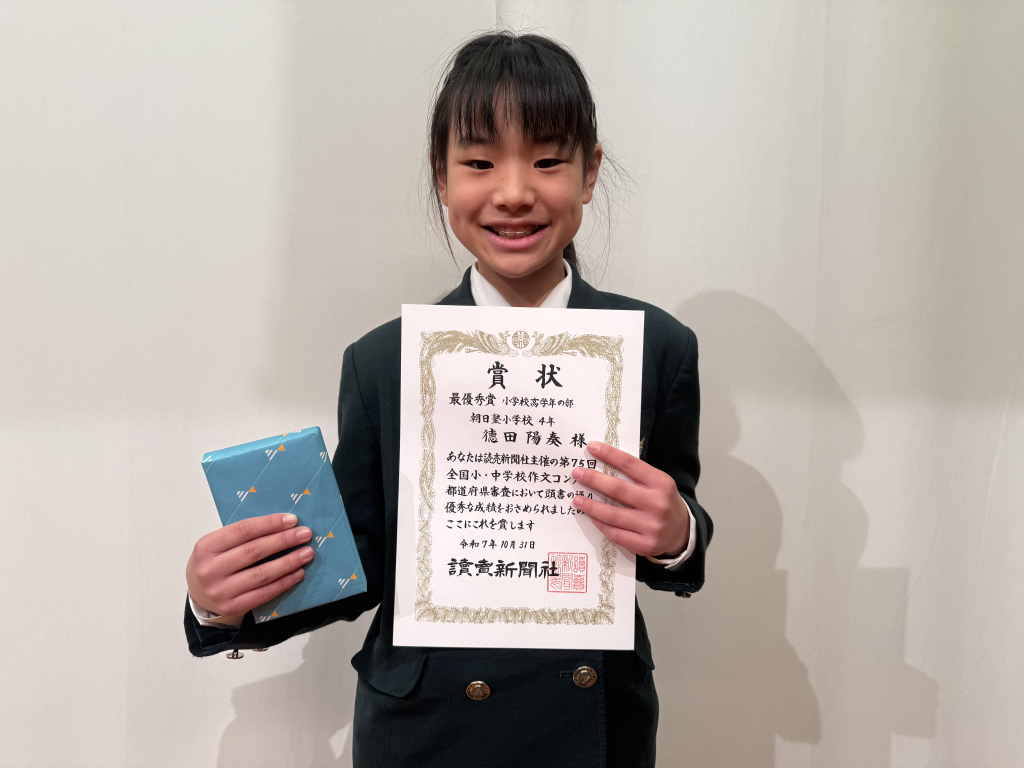 賞状
最優秀賞 小学校高学年の部
朝日塾小学校 4年
徳田 陽奏 様
あなたは読売新聞社主催の第75回
全国小・中学校作文コン
都道府県審査において頭書の通り
優秀な成績をおさめられました
ここにこれを賞します
令和7年10月31日
讀賣新聞社